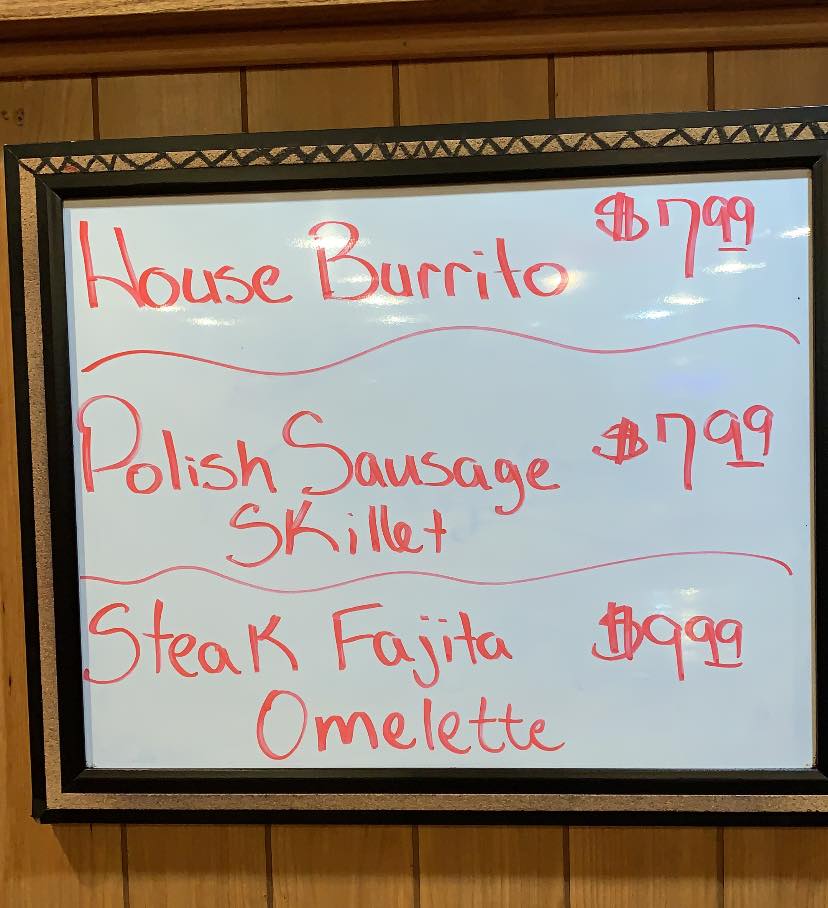 House Burrito $7.99
Polish Sausage $7.99
Skillet
Steak Fajita $9.99
Omelette